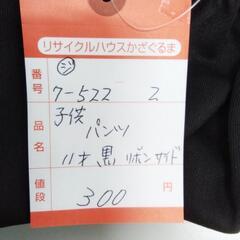 リサイクルハウスかざぐるま
ジ
番号 7-522 2
品名 子供
パンツ
11才 黒 リボンサイド
値段 300 円